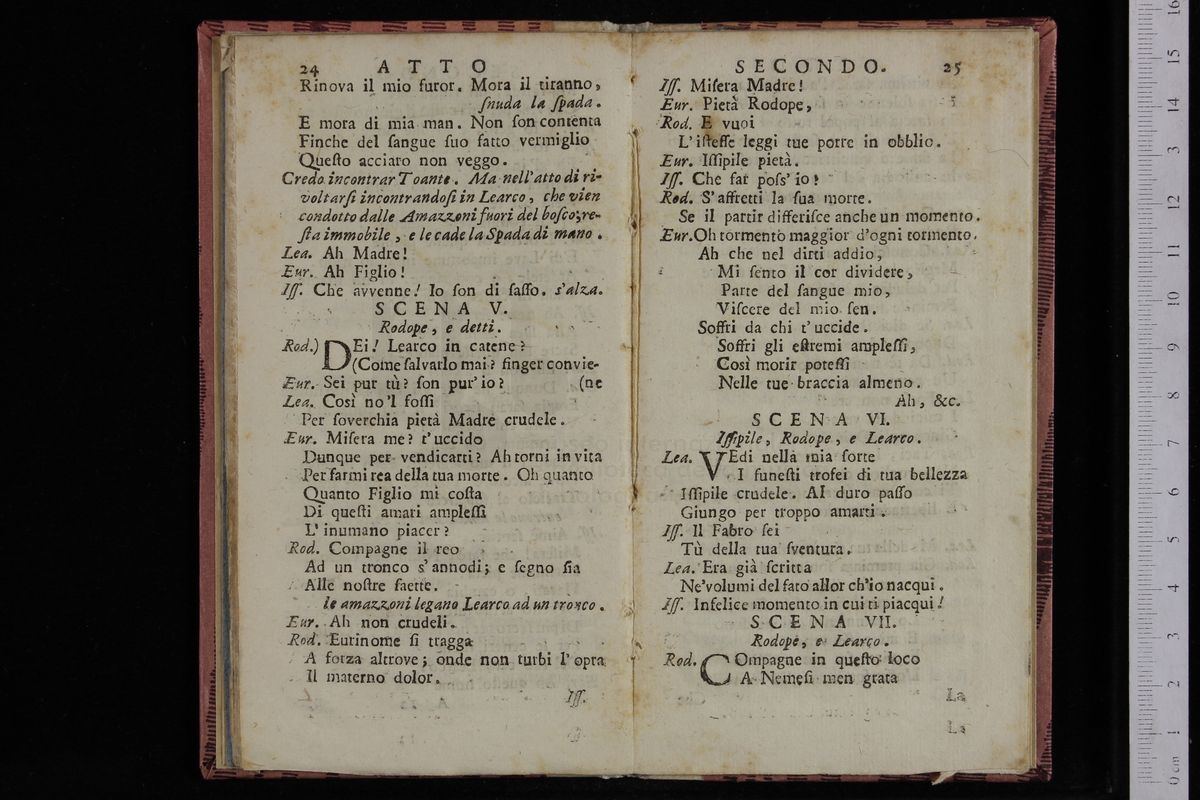 24 ATTO
Rinova il mio furor. Mora il tiranno,
ſnuda la ſpada.
E mora di mia man. Non ſon contenta
Finche del ſangue ſuo fatto vermiglio
Queſto acciaro non veggo.
Credo incontrar Toante. Ma nell'atto di ri-
voltarſi incontrandoſi in Learco, che vien
condotto dalle Amazzoni fuori del boſco, re-
ſta immobile, e le cade la Spada di mano.
Lea. Ah Madre!
Eur. Ah Figlio!
Iſſ. Che avvenne! Io ſon di ſaſſo. s'alza.
SCENA V.
Rodope, e detti.
Rod.) DEi! Learco in catene?
(Come ſalvarlo mai? finger convie-
Eur. Sei pur tù? ſon pur' io? (ne
Lea. Così no'l foſſi
Per ſoverchia pietà Madre crudele.
Eur. Miſera me? t'uccido
Dunque per vendicarti? Ah torni in vita
Per farmi rea della tua morte. Oh quanto
Quanto Figlio mi coſta
Di queſti amari ampleſſi
L' inumano piacer?
Rod. Compagne il reo
Ad un tronco s'annodi; e ſegno ſia
Alle noſtre ſaette.
le amazzoni legano Learco ad un tronco.
Eur. Ah non crudeli.
Rod. Eurinome ſi tragga
A forza altrove; onde non turbi l' opra
Il materno dolor.
Iſſ.
SECONDO. 25
Iſſ. Miſera Madre!
Eur. Pietà Rodope,
Rod. E vuoi
L' iſteſſe leggi tue porre in obblio.
Eur. Iſſipile pietà.
Iſſ. Che far poſs' io?
Rod. S'affretti la ſua morte.
Se il partir differiſce anche un momento.
Eur. Oh tormento maggior d'ogni tormento.
Ah che nel dirti addio,
Mi ſento il cor dividere,
Parte del ſangue mio,
Viſcere del mio ſen.
Soffri da chi t' uccide.
Soffri gli eſtremi ampleſſi,
Così morir poteſſi
Nelle tue braccia almeno.
Ah, &c.
SCENA VI.
Iſſipile, Rodope, e Learco.
Lea. VEdi nella mia ſorte
I funeſti trofei di tua bellezza
Iſſipile crudele. Al duro paſſo
Giungo per troppo amarti.
Iſſ. Il Fabro ſei
Tù della tua ſventura.
Lea. Era già ſcritta
Ne'volumi del fato allor ch'io nacqui.
Iſſ. Infelice momento in cui ti piacqui!
SCENA VII.
Rodope, e Learco.
Rod. COmpagne in queſto loco
A Nemeſi men grata
La